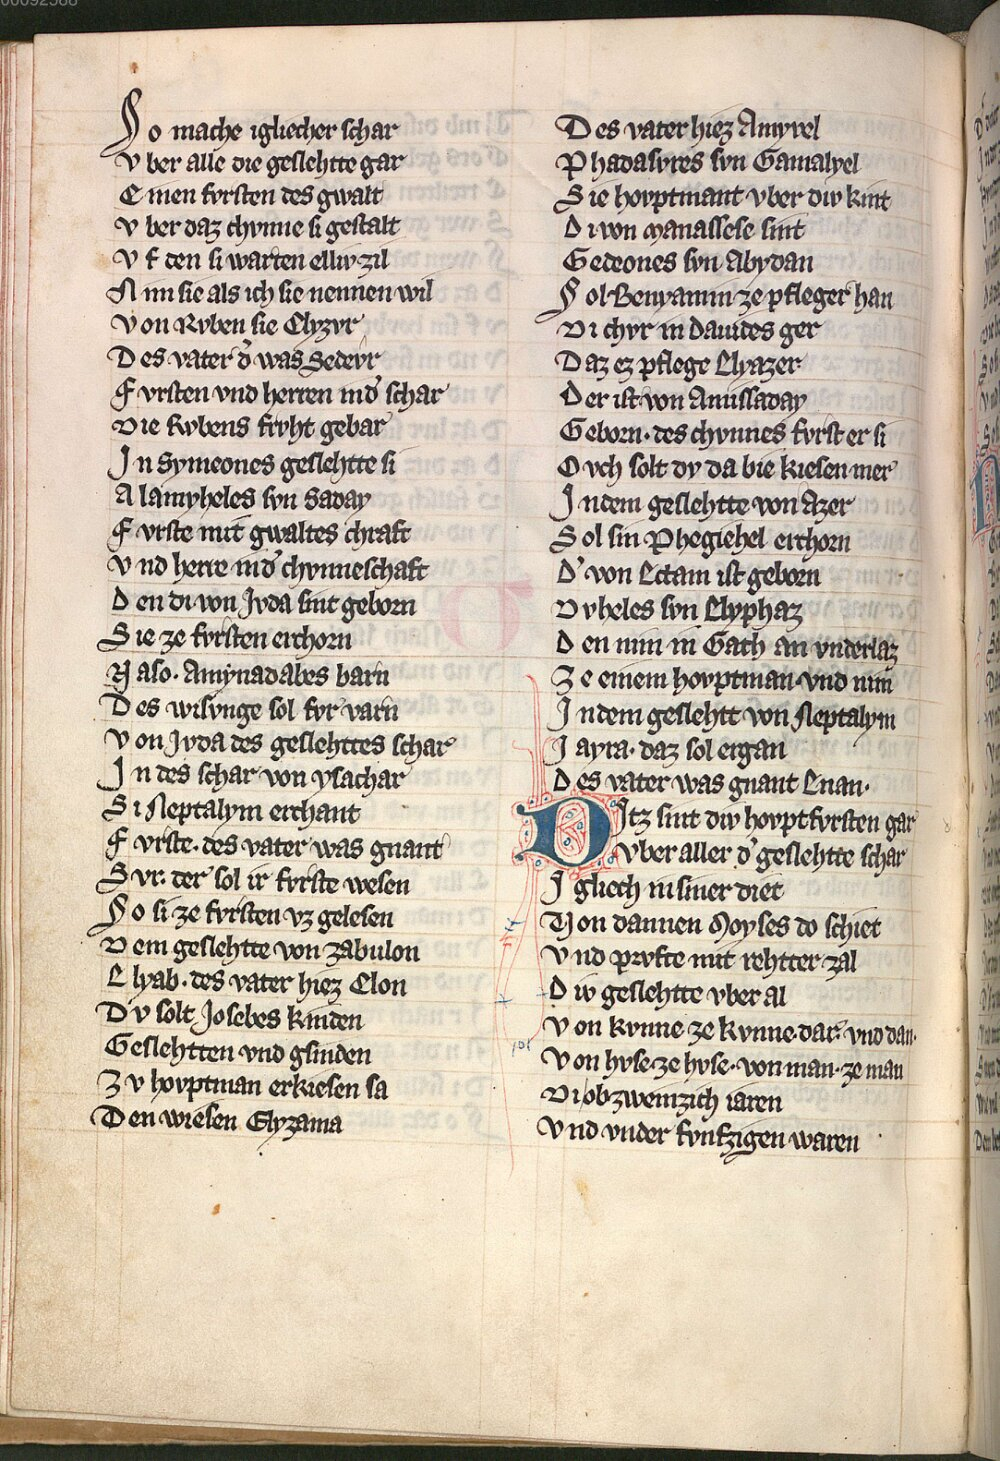 So mache igliecher schar
Vber alle die geslehtte gar
Einen fvrsten des gwalt
Vber daz chvnne si gestalt
Vf den si warten elliv zil
Nim sie als ich sie nennen wil
Von Rvben sie Elyzvr
Des vater d' was Sedevr
Fvrsten vnd herren in d' schar
Die Rvbens frvht gebar
In Symeones geslehtte si
Alamyheles svn Saday
Fvrste mit gwaltes chraft
Vnd herre in d' chvnneschaft
Den di von Jvda sint geborn
Sie ze fvrsten erchorn
Naso. Amynadabes barn
Des wisvnge sol fvr varn
Von Jvda des geslehttes schar
In des schar von ysachar
Si Neptalym erchant
Fvrste. des vater was gnant
Svr. der sol ir fvrste wesen
So si ze fvrsten vz gelesen
Dem geslehtte von zabulon
Elyab. des vater hiez Elon
Dv solt Josebes kinden
Geslehtten vnd gsinden
Zv hovptman erkiesen sa
Den wiesen Elyzama
Des vater hiez Amyvel
Phadasvres svn Gamalyel
Sie hovptmant vber div kint
Di von Manassese sint
Gedeones svn Abydan
Sol Benyamin ze pfleger han
Di chvr in dauides ger
Daz ez pflege Elyazer
Der ist von Amissaday
Geborn. des chvnnes fvrst er si
Ovch solt dv da bie kiesen mer
In dem geslehtte von Azer
Sol sin Phegiehel erchorn
D' von Ectam ist geborn
Dvheles svn Elyphaz
Den nim in Gath an vnderlaz
Ze einem hovptman vnd nim
In dem geslehtt von Neptalym
Jayra. daz sol ergan
Des vater was gnant Enan.
Ditz sint div hovptfvrsten gar
Vber aller d' geslehtte schar
Igliech in siner diet
Von dannen Moyses do schiet
Vnd prvfte mit rehtter zal
Div geslehtte vber al
Von kvnne ze kvnne. dar vnd dan.
Von hvse. ze hvse. von man. ze man
Di ob zweinzich iaren
Vnd vnder fvnfzigen waren